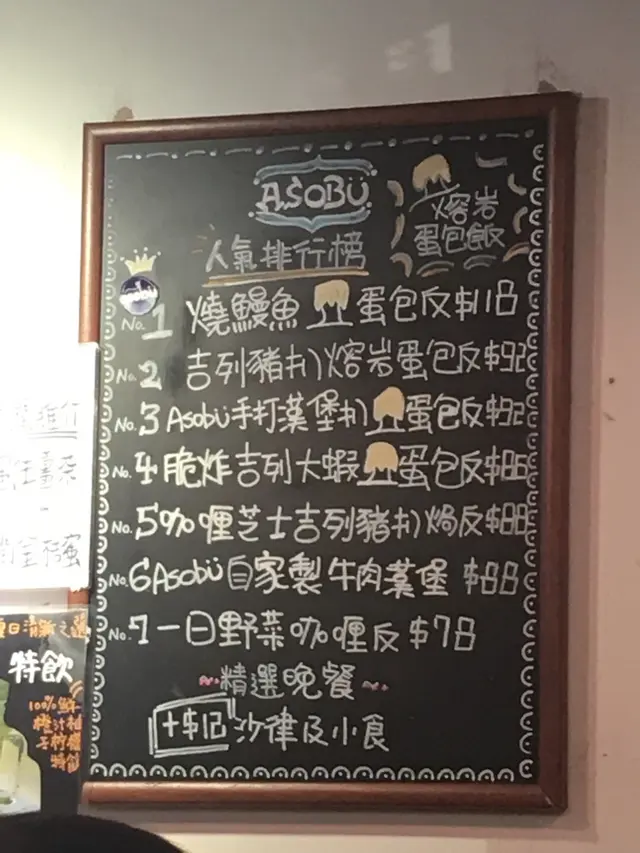 ASOBU
熔岩
蛋包飯
人氣排行榜
No.1 燒鰻魚 蛋包反$118
No.2 吉列豬扒熔岩蛋包反$92
No.3 Asobu手打漢堡扒 蛋包反$92
No.4 脆炸吉列大蝦 蛋包反$86
No.5 咖喱芝士吉列豬扒焗反$88
No.6 Asobu自家製牛肉漢堡 $88
No.7 一日野菜咖喱反$78
~精選晚餐~
+$12 沙律及小食
特飲
100%鮮
橙汁